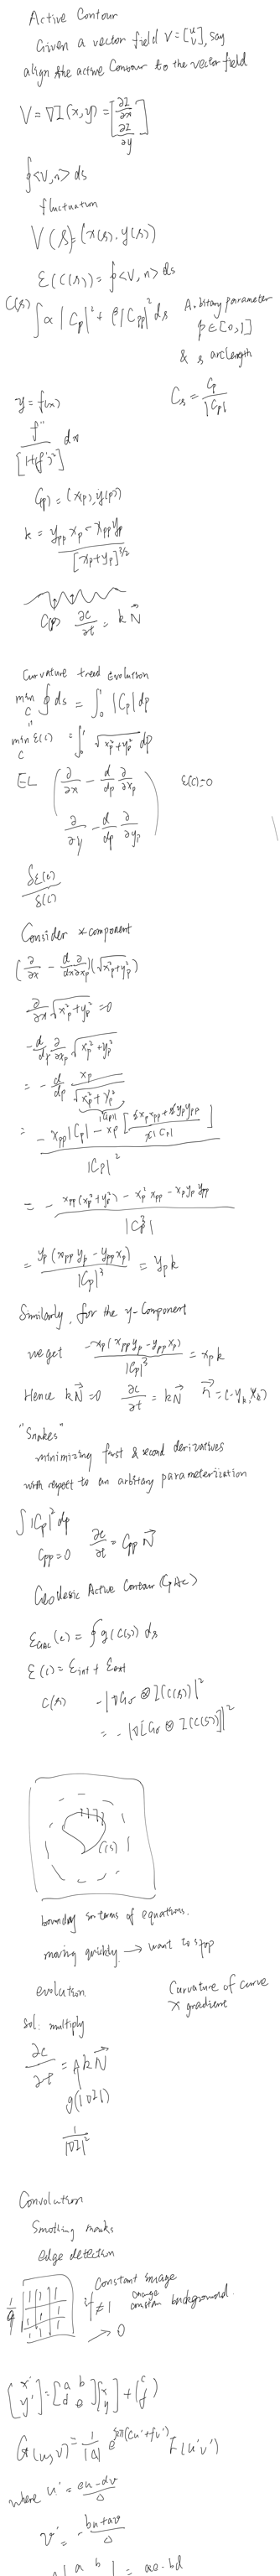 Active Contour
Given a vector field V = [u v], say
align the active Contour to the vector field
V = ∇I(x,y) = [∂I/∂x ∂I/∂y]
∮<V,n> ds
fluctuation
V(s) = (x(s), y(s))
ε(C(s)) = ∮<V,n> ds
C(s) ∫α|Cp|² + β|Cpp|² ds
Arbitary parameter
p∈[0,1]
& s arclength
Cs = Cp/|Cp|
y = f(x)
f''/[1+(f')²] dx
C(p) = (x(p), y(p))
k = ypp xp - xpp yp / [xp+yp]^3/2
C(p) ∂c/∂t = k N⃗
Curvature Evolution
min C ∮ds = ∫₀¹ |Cp| dp
min C ε(c) = ∫₀¹ √xp²+yp² dp
EL (∂/∂x - d/dp ∂/∂xp
∂/∂y - d/dp ∂/∂yp)
ε(c)=0
δε(c)/δ(c)
Consider x component
(∂/∂x - d/dx ∂/∂xp)(√xp²+yp²)
∂/∂x √xp²+yp² = 0
-d/dp ∂/∂xp √xp²+yp²
= -d/dp xp/√xp²+yp²
|Cp|
= - xpp|Cp| - xp [2xpxpp + 2ypypp / 2|Cp|] / |Cp|²
= - xpp(xp²+yp²) - xp²xpp - xpypypp / |Cp³|
= yp(xppyp - yppxp)/|Cp|³ = ypk
Similarly, for the y-component
we get -xp(xppyp - yppxp)/|Cp|³ = xpk
Hence kN⃗=0 ∂c/∂t = kN⃗ n⃗=(-ys,xs)
"Snakes"
minimizing first & second derivatives
with respect to an arbitary parameterization
∫|Cp|² dp
Cpp=0 ∂c/∂t = Cpp N⃗
Geodesic Active Contour (GAC)
εGAC(c) = ∮g(C(s)) ds
ε(c) = εint + εext
C(s) -|∇Gσ ⊗ I(C(s))|²
= -|∇[Gσ ⊗ I(C(s))]|²
C(s)
boundary in terms of equations.
moving quickly → want to stop
evolution
Curvature of curve
x gradient
Sol: multiply
∂c/∂t = AkN⃗
g(|∇I|)
1/|∇I|²
Convolution
Smothing masks
edge detection
1/9
1 1 1
1 1 1
1 1 1
Constant image
if ≠1 change constan background.
→ 0
[x' y'] = [a b d e][x y] + (c f)
G(u,v) = 1/|Δ| e^j2π(cu'+fv') F(u'v')
where u' = eu-dv/Δ
v' = -bu+av/Δ
a b = ae-bd